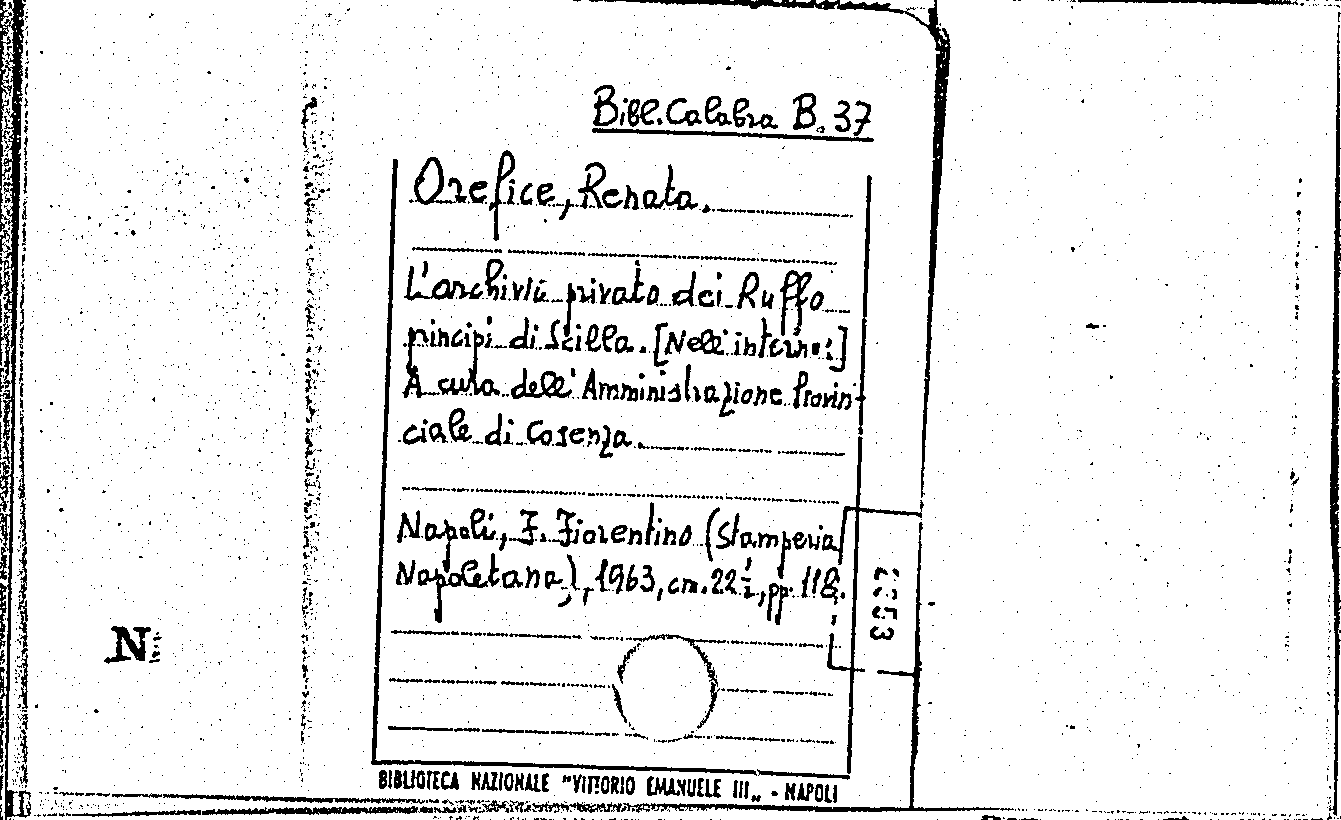 Bibl. Calabra B. 37
Orefice, Renata.
L'archivio privato dei Ruffo
principi di Scilla. [Nell'interno:]
A cura dell'Amministrazione Provin-
ciale di Cosenza.
Napoli, F. Fiorentino (Stamperia
Napoletana), 1963, cm. 22½, pp. 118.
N
BIBLIOTECA NAZIONALE "VITTORIO EMANUELE III„ - NAPOLI